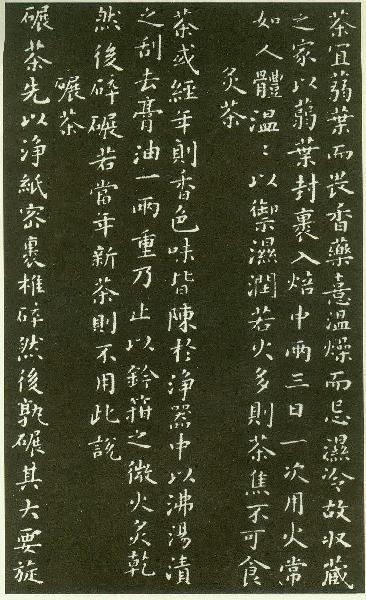 茶宜蒻葉而畏香藥憙溫燥而忌濕冷故収藏
之家以蒻葉封裹入焙中兩三日一次用火常
如人體溫〻以禦濕潤若火多則茶焦不可食
炙茶
茶或經年則香色味皆陳於淨器中以沸湯漬
之刮去膏油一兩重乃止以鈐箝之微火炙乾
然後碎碾若當年新茶則不用此說
碾茶
碾茶先以淨紙密裹椎碎然後孰碾其大要旋